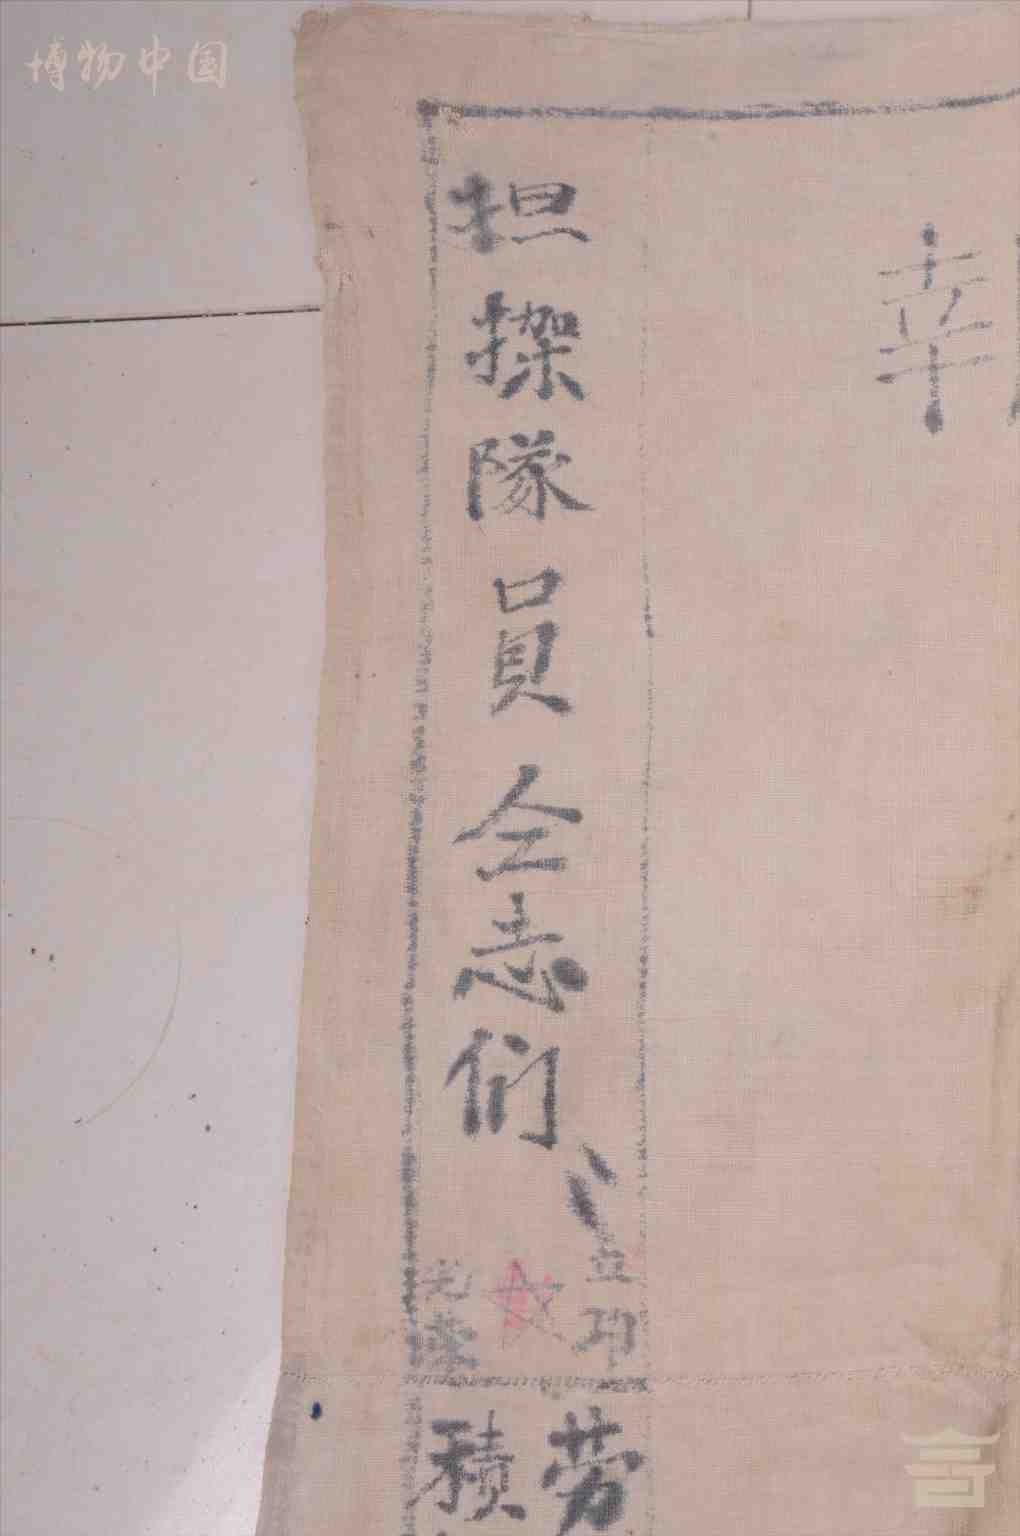 博物中国
幸
担架隊員仝志们
立功
光荣
劳
積